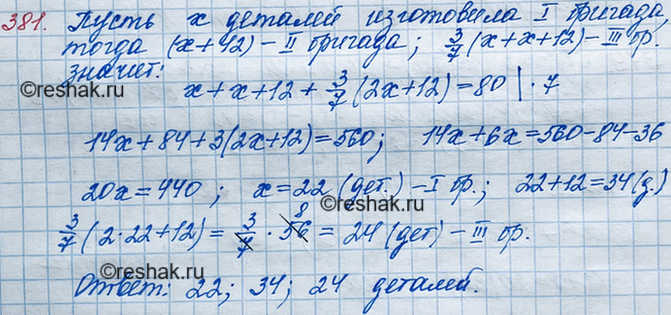 381. Пусть x деталей изготовила I бригада,
тогда (x+12) – II бригада; 3/7 (x+x+12) – III бр.
значит:
©reshak.ru
x+x+12+3/7(2x+12)=80 |·7
©reshak.ru
14x+84+3(2x+12)=560; 14x+6x=560-84-36
20x=440; x=22 (дет.) – I бр.; 22+12=34(д.)
3/7(2·22+12)=3/7·56 8=24(дет) – III бр.
©reshak.ru
Ответ: 22; 34; 24 деталей.
©reshak.ru